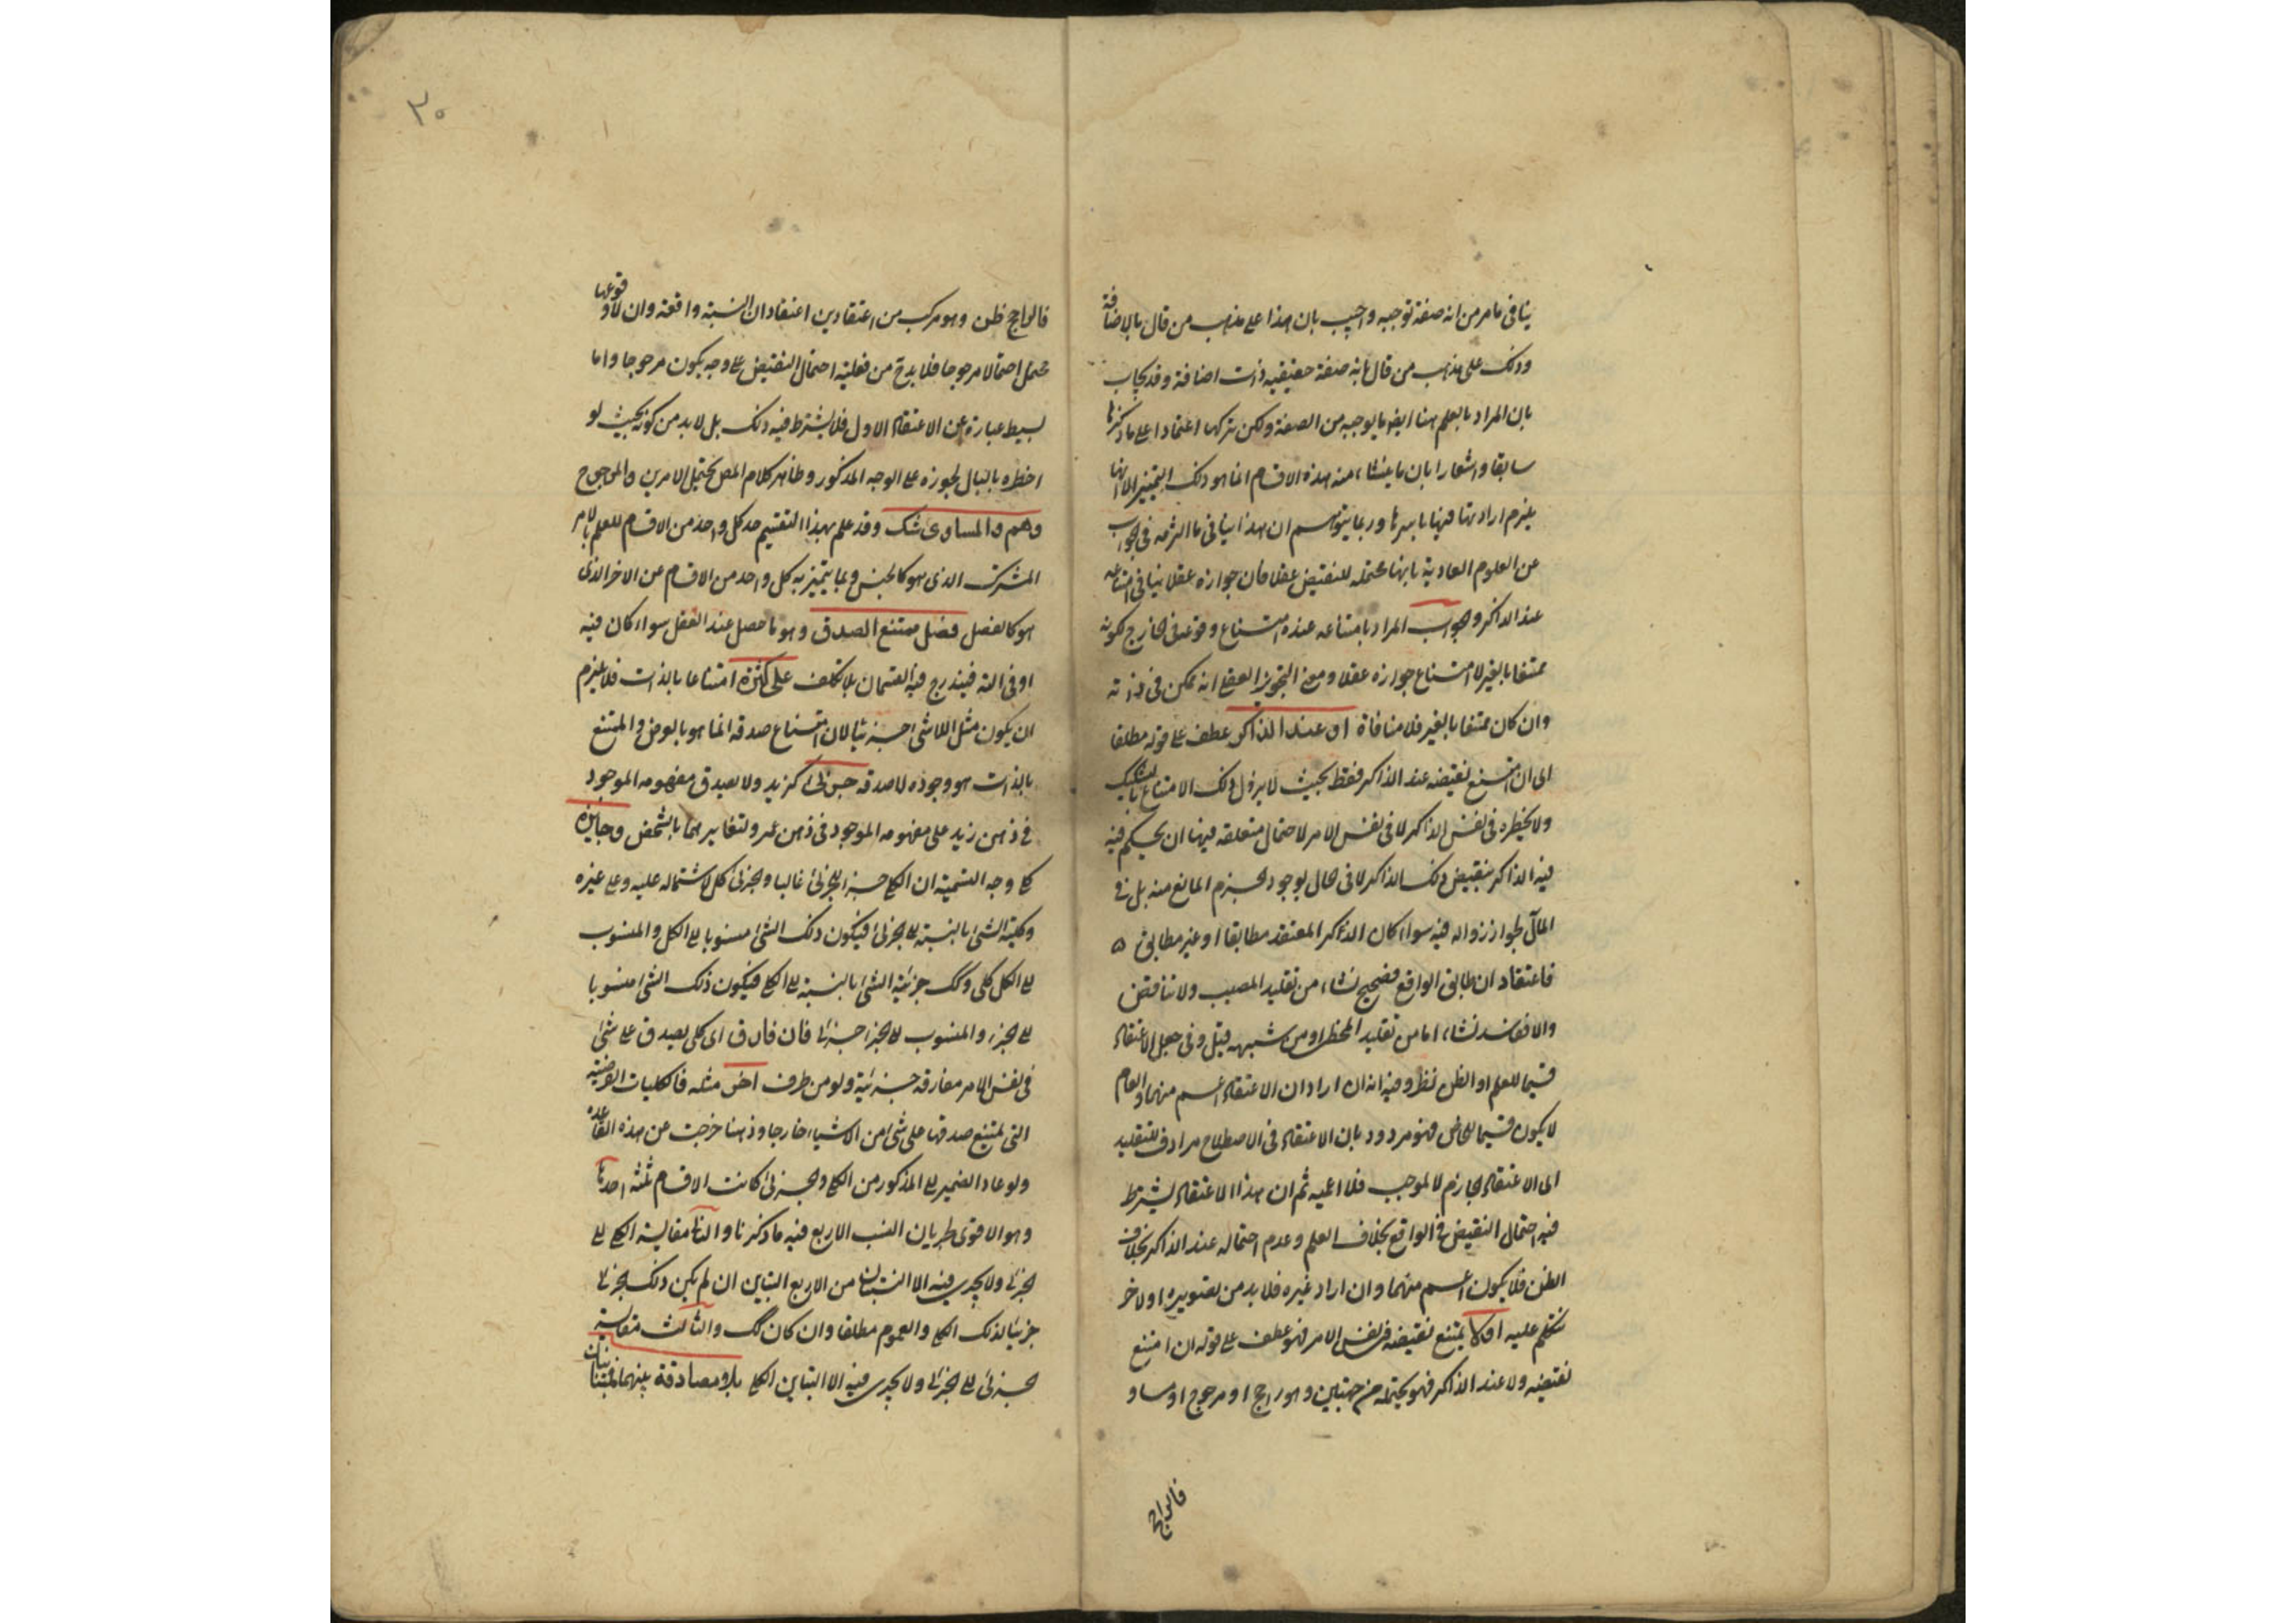 ينافى ما مر من انه صفة توجبه واجيب بان هذا على مذهب من قال بالاضافة
وذلك على مذهب من قال بانه صفة حقيقيه ذات اضافة وقد يجاب
بان المراد بالعلم هنا ايض ما يوجبه من الصفة ولكن تركها اعتمادا على ما ذكرها
سابقا واشعارا بان ما ينشاء منه هذه الاقسام انما هو ذلك التمييز الا انها
يلزم ارادتها فيها باسرها وربما يتوهم ان هذا ينافى ما التزمه فى الجواب
عن العلوم العادية بانها محتمله للنقيض عقلا فان جوازه عقلا ينافى امتناعه
عند الذاكر والجواب المراد بامتناعه عنده امتناع وقوعه فى الخارج لكونه
ممتنعا بالغير لا امتناع جوازه عقلا ومعنى التجويز العقلى انه ممكن فى ذاته
وان كان ممتنعا بالغير فلا منافاة او عند الذاكر عطف على قوله مطلقا
اى ان امتنع نقيضه عند الذاكر فقط بحيث لا يزول ذلك الامتناع بالتشكيك
ولا يخطره فى نفس الذاكر لا فى نفس الامر لاحتمال متعلقه فيها ان يحكم فيه
فيه الذاكر بنقيض ذلك الذاكر لا فى الحال لوجود الجزم المانع منه بل فى
المآل لجواز زواله فيه سواء كان الذاكر المعتقد مطابقا او غير مطابق
فاعتقاد ان طابق الواقع فصحيح نشاء من تقليد المصيب ولا تناقض
والا ففاسد نشاء اما من تقليد المخطى او من شبهه قيل وفى جعل الاعتقاد
قسيما للعلم او الظن نظر وفيه انه ان اراد ان الاعتقاد اعم منهما والعام
لا يكون قسيما للخاص فهو مردود بان الاعتقاد فى الاصطلاح مرادف للتقليد
اى الاعتقاد الجازم لا لموجب فلا اعميه ثم ان هذا الاعتقاد يشترط
فيه احتمال النقيض فى الواقع بخلاف العلم وعدم احتماله عند الذاكر بخلاف
الظن فلا يكون اعم منهما وان اراد غيره فلا بد من تصويره اولا خر
نتكلم عليه اولا يمتنع نقيضه فى نفس الامر فهو عطف على قوله ان امتنع
نقيضه ولا عند الذاكر فهو يحتمله من جهتين وهو راجح او مرجوح او مساو
فالراجح
٣٠
فالراجح ظن وهو مركب من اعتقادين اعتقاد ان النسبة واقعة وان لا وقوعها
محتمل احتمالا مرجوحا فلا بد ح من فعليته احتمال النقيض على وجه يكون مرجوحا واما
بسيط عبارة عن الاعتقاد الاول فلا يشترط فيه ذلك بل لا بد من كونه بحيث لو
اخطره بالبال لجوزه على الوجه المذكور وظاهر كلام المص يحتمل الامرين والمرجوح
وهم والمساوى شك وقد علم بهذا التقسيم حد كل واحد من الاقسام للعلم بالامر
المشترك الذى هو كالجنس وبما يتميز به كل واحد من الاقسام عن الاخر الذى
هو كالفصل فصل ممتنع الصدق وهو ما حصل عند العقل سواء كان فيه
او فى الته فيندرج فيه القسمان بلا تكلف على كثرة امتناعا بالذات فلا يلزم
ان يكون مثل اللاشئ جزئيا لان امتناع صدقه انما هو بالعرض والممتنع
بالذات هو وجوده لا صدقه جزئى كزيد ولا يصدق مفهومه الموجود
فى ذهن زيد على مفهومه الموجود فى ذهن عمرو لتغايرهما بالشخص وجايزه
كلى وجه التسمية ان الكلى جزء الجزئى غالبا والجزئى كل لاشتماله عليه وعلى غيره
وكلية الشئ بالنسبة الى الجزئى فيكون ذلك الشئ منسوبا الى الكل والمنسوب
الى الكل كلى وكك جزئية الشئ بالنسبة الى الكلى فيكون ذلك الشئ منسوبا
الى الجزء والمنسوب الى الجزء جزئى فان فارق اى كلى يصدق على شئ
فى نفس الامر مفارقه جزئية ولو من طرف اخر مثله فالكليات الفرضية
التى يمتنع صدقها على شئ من الاشياء خارجا وذهنا خرجت عن هذه القاعدة
ولو عاد الضمير الى المذكور من الكلى والجزئى كانت الاقسام ثلثه احدها
وهو الاقوى طريان النسب الاربع فيه ما ذكرنا والثا مقايسة الكلى الى
الجزئى ولا يجرى فيه الا النسبتان من الاربع التباين ان لم يكن ذلك الجزئى
جزئيا لذلك الكلى والعموم مطلقا وان كان كك والثالث مقايسة
الجزئى الى الجزئى ولا يجرى فيه الا التباين الكلى بلا مصادقة بينهما متباينان